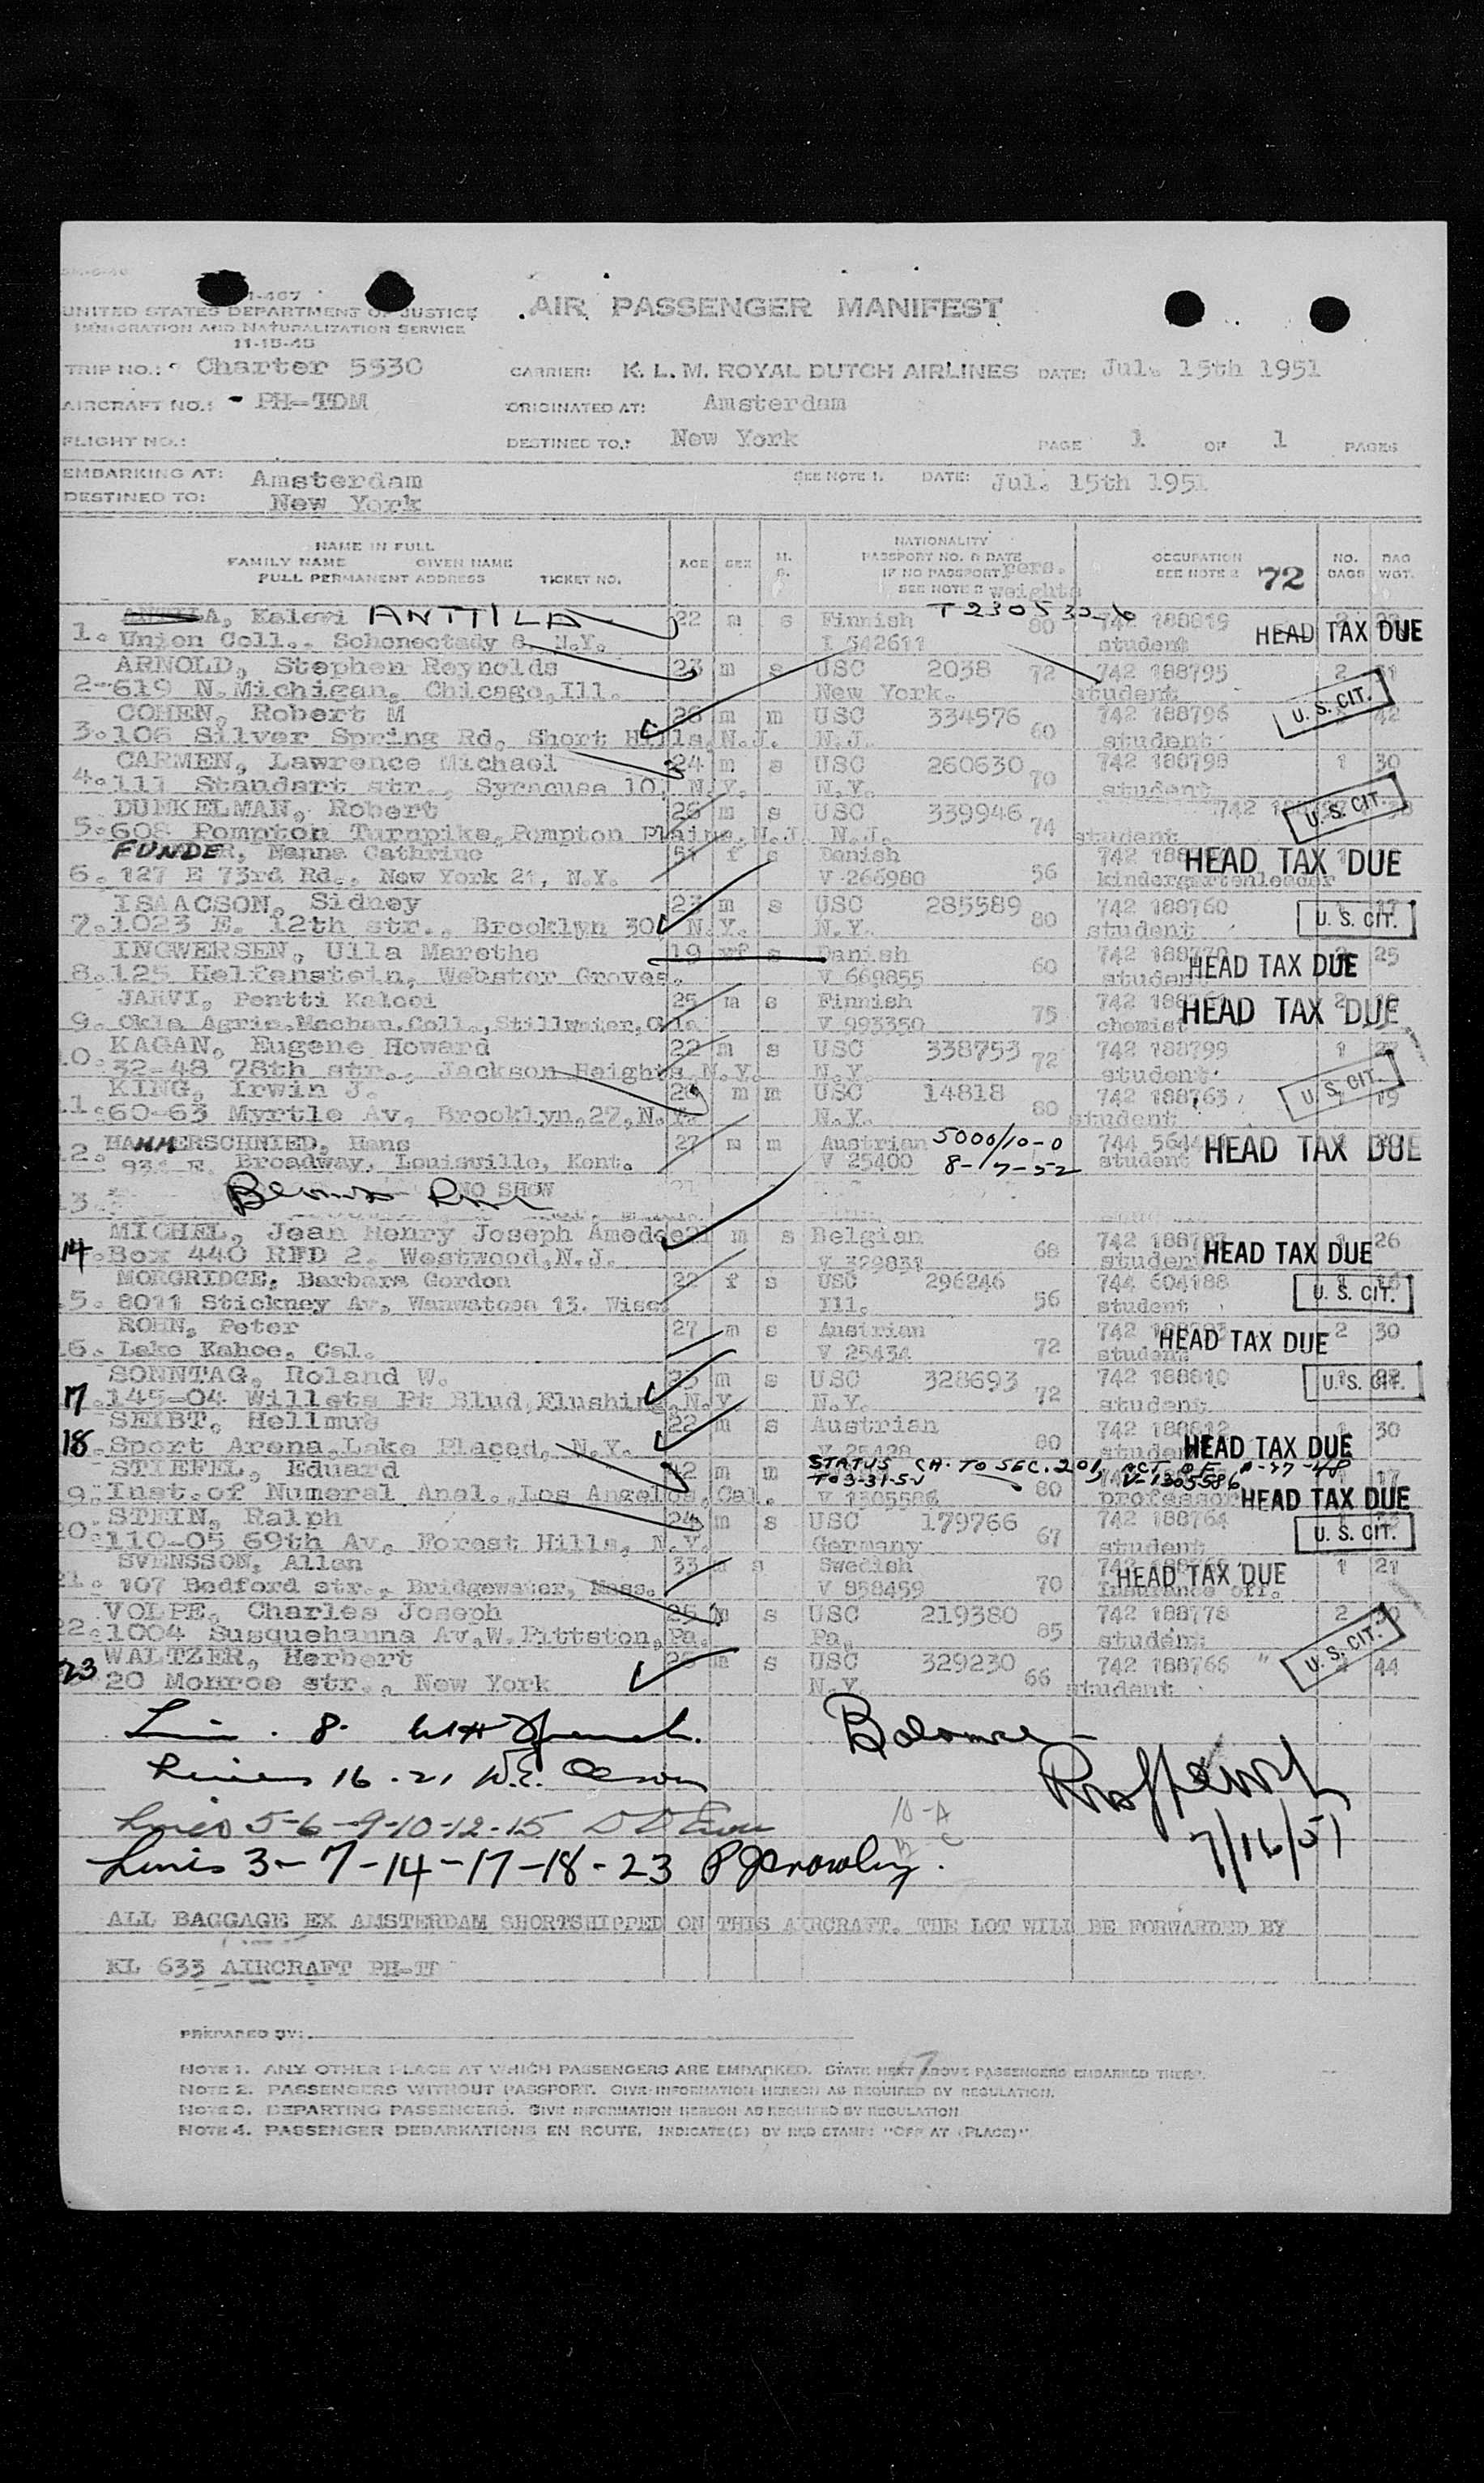 I-467
UNITED STATES DEPARTMENT OF JUSTICE
IMMIGRATION AND NATURALIZATION SERVICE
11-15-45
AIR PASSENGER MANIFEST
TRIP NO.: Charter 5330 CARRIER: K. L. M. ROYAL DUTCH AIRLINES DATE: Jul. 15th 1951
AIRCRAFT NO.: - PH-TDM ORIGINATED AT: Amsterdam
FLIGHT NO.: DESTINED TO.: New York PAGE 1 OF 1 PAGES
EMBARKING AT: Amsterdam SEE NOTE 1. DATE: Jul. 15th 1951
DESTINED TO: New York
NAME IN FULL
FAMILY NAME GIVEN NAME
FULL PERMANENT ADDRESS TICKET NO.
AGE SEX M. S.
NATIONALITY
PASSPORT NO. & DATE
IF NO PASSPORT pers.
SEE NOTE 2 weights
OCCUPATION
SEE NOTE 2 72
NO. BAGS BAG WGT.
Kalevi ANTTILA 22 m s Finnish 80 742 188819 2
1. Union Coll., Schonectady 8, N.Y. I 542611 student HEAD TAX DUE
ARNOLD, Stephen Reynolds 23 m s USC 2038 72 742 188795 2 31
2-619 N.Michigan, Chicago,Ill. New York. student U. S. CIT.
COHEN, Robert M 26 m m USC 334576 60 742 188796 42
3.106 Silver Spring Rd, Short Hills,N.J. N.J. student
CARMEN, Lawrence Michael 24 m s USC 260630 70 742 188798 1 30
4.111 Standart str., Syracuse 10, N.Y. N.Y. student
DUNKELMAN, Robert 26 m s USC 339946 74 742
5.608 Pompton Turnpike,Pompton Plains,N.J. N.J. student U. S. CIT.
FUNDER, Nanna Cathrine 51 f s Danish 56 742 HEAD TAX DUE
6. 127 E 73rd Rd., New York 21, N.Y. V 266980 kindergartenleader
ISAACSON, Sidney 23 m s USC 285589 80 742 188760 1 17
7.1023 E. 12th str., Brooklyn 30, N.Y. N.Y. student U. S. CIT.
INGWERSEN, Ulla Marethe 19 f s Danish 60 742 188770 25
8.125 Helfenstein, Webster Groves. V 669855 student HEAD TAX DUE
JARVI, Pentti Kalooi 25 m s Finnish 75 742 2
9. Okla Agric.Mechan.Coll.,Stillwater,Okla V 993350 chemist HEAD TAX DUE
KAGAN, Eugene Howard 22 m s USC 338753 72 742 188799 1 27
10. 32-48 78th str., Jackson Heights N.Y. N.Y. student U. S. CIT.
KING, Irwin J. 28 m m USC 14818 80 742 188763 1 19
11.60-63 Myrtle Av, Brooklyn,27,N.Y. N.Y. student
HAMMERSCHMIED, Hans 27 m m Austrian 5000/10-0 744 HEAD TAX DUE
12. Broadway, Louisville, Kent. V 25400 8-17-52 student
13. NO SHOW
MICHEL, Jean Henry Joseph Amedee 21 m s Belgian 68 742 26
14.Box 440 RFD 2. Westwood,N.J. V 329831 student HEAD TAX DUE
MORGRIDGE, Barbara Gordon 22 f s USC 296246 56 744 604188
15. 8011 Stickney Av, Wauwatosa 13. Wisc. Ill. student U. S. CIT.
ROHN, Peter 27 m s Austrian 72 742 2 30
16. Lake Kahoe, Cal. V 25434 student HEAD TAX DUE
SONNTAG, Roland W. m s USC 328693 72 742 188810
17.145-04 Willets Pt Blud,Flushing,N.Y. N.Y. student U. S. CIT.
SEIBT, Hellmut 22 m s Austrian 80 742 188812 1 30
18.Sport Arena,Lake Placed, N.Y. V 25428 student HEAD TAX DUE
STIEFEL, Eduard 42 m m STATUS CH. TO SEC. 201, ACT OF
19.Inst.of Numeral Anal.,Los Angelos,Cal. V 1305586 80 V-1305586 professor HEAD TAX DUE
STEIN, Ralph 24 m s USC 179766 67 742 188764
20.110-05 69th Av, Forest Hills, N.Y. Germany student U. S. CIT.
SVENSSON, Allan 33 m s Swedish 70 742 1 21
21. 107 Bedford str., Bridgewater, Mass. V 858459 Insurance off. HEAD TAX DUE
VOLPE, Charles Joseph 25 m s USC 219380 85 742 188778 2
22.1004 Susquehanna Av,W.Pittston,Pa. Pa. student
WALTZER, Herbert 25 m s USC 329230 66 742 188766 44
23 20 Monroe str., New York N.Y. student U. S. CIT.
Balance
Lines 16-21 W.E.
Lines 5-6-9-10-12-15
Lines 3-7-14-17-18-23 P J Crowley.
7/16/51
ALL BAGGAGE EX AMSTERDAM SHORTSHIPPED ON THIS AIRCRAFT. THE LOT WILL BE FORWARDED BY
KL 633 AIRCRAFT PH-T
PREPARED BY:
NOTE 1. ANY OTHER PLACE AT WHICH PASSENGERS ARE EMBARKED. STATE NEXT ABOVE PASSENGERS EMBARKED THERE.
NOTE 2. PASSENGERS WITHOUT PASSPORT. GIVE INFORMATION HEREON AS REQUIRED BY REGULATION.
NOTE 3. DEPARTING PASSENGERS. GIVE INFORMATION HEREON AS REQUIRED BY REGULATION
NOTE 4. PASSENGER DEBARKATIONS EN ROUTE. INDICATE(S) BY RED STAMP: "OFF AT (PLACE)"